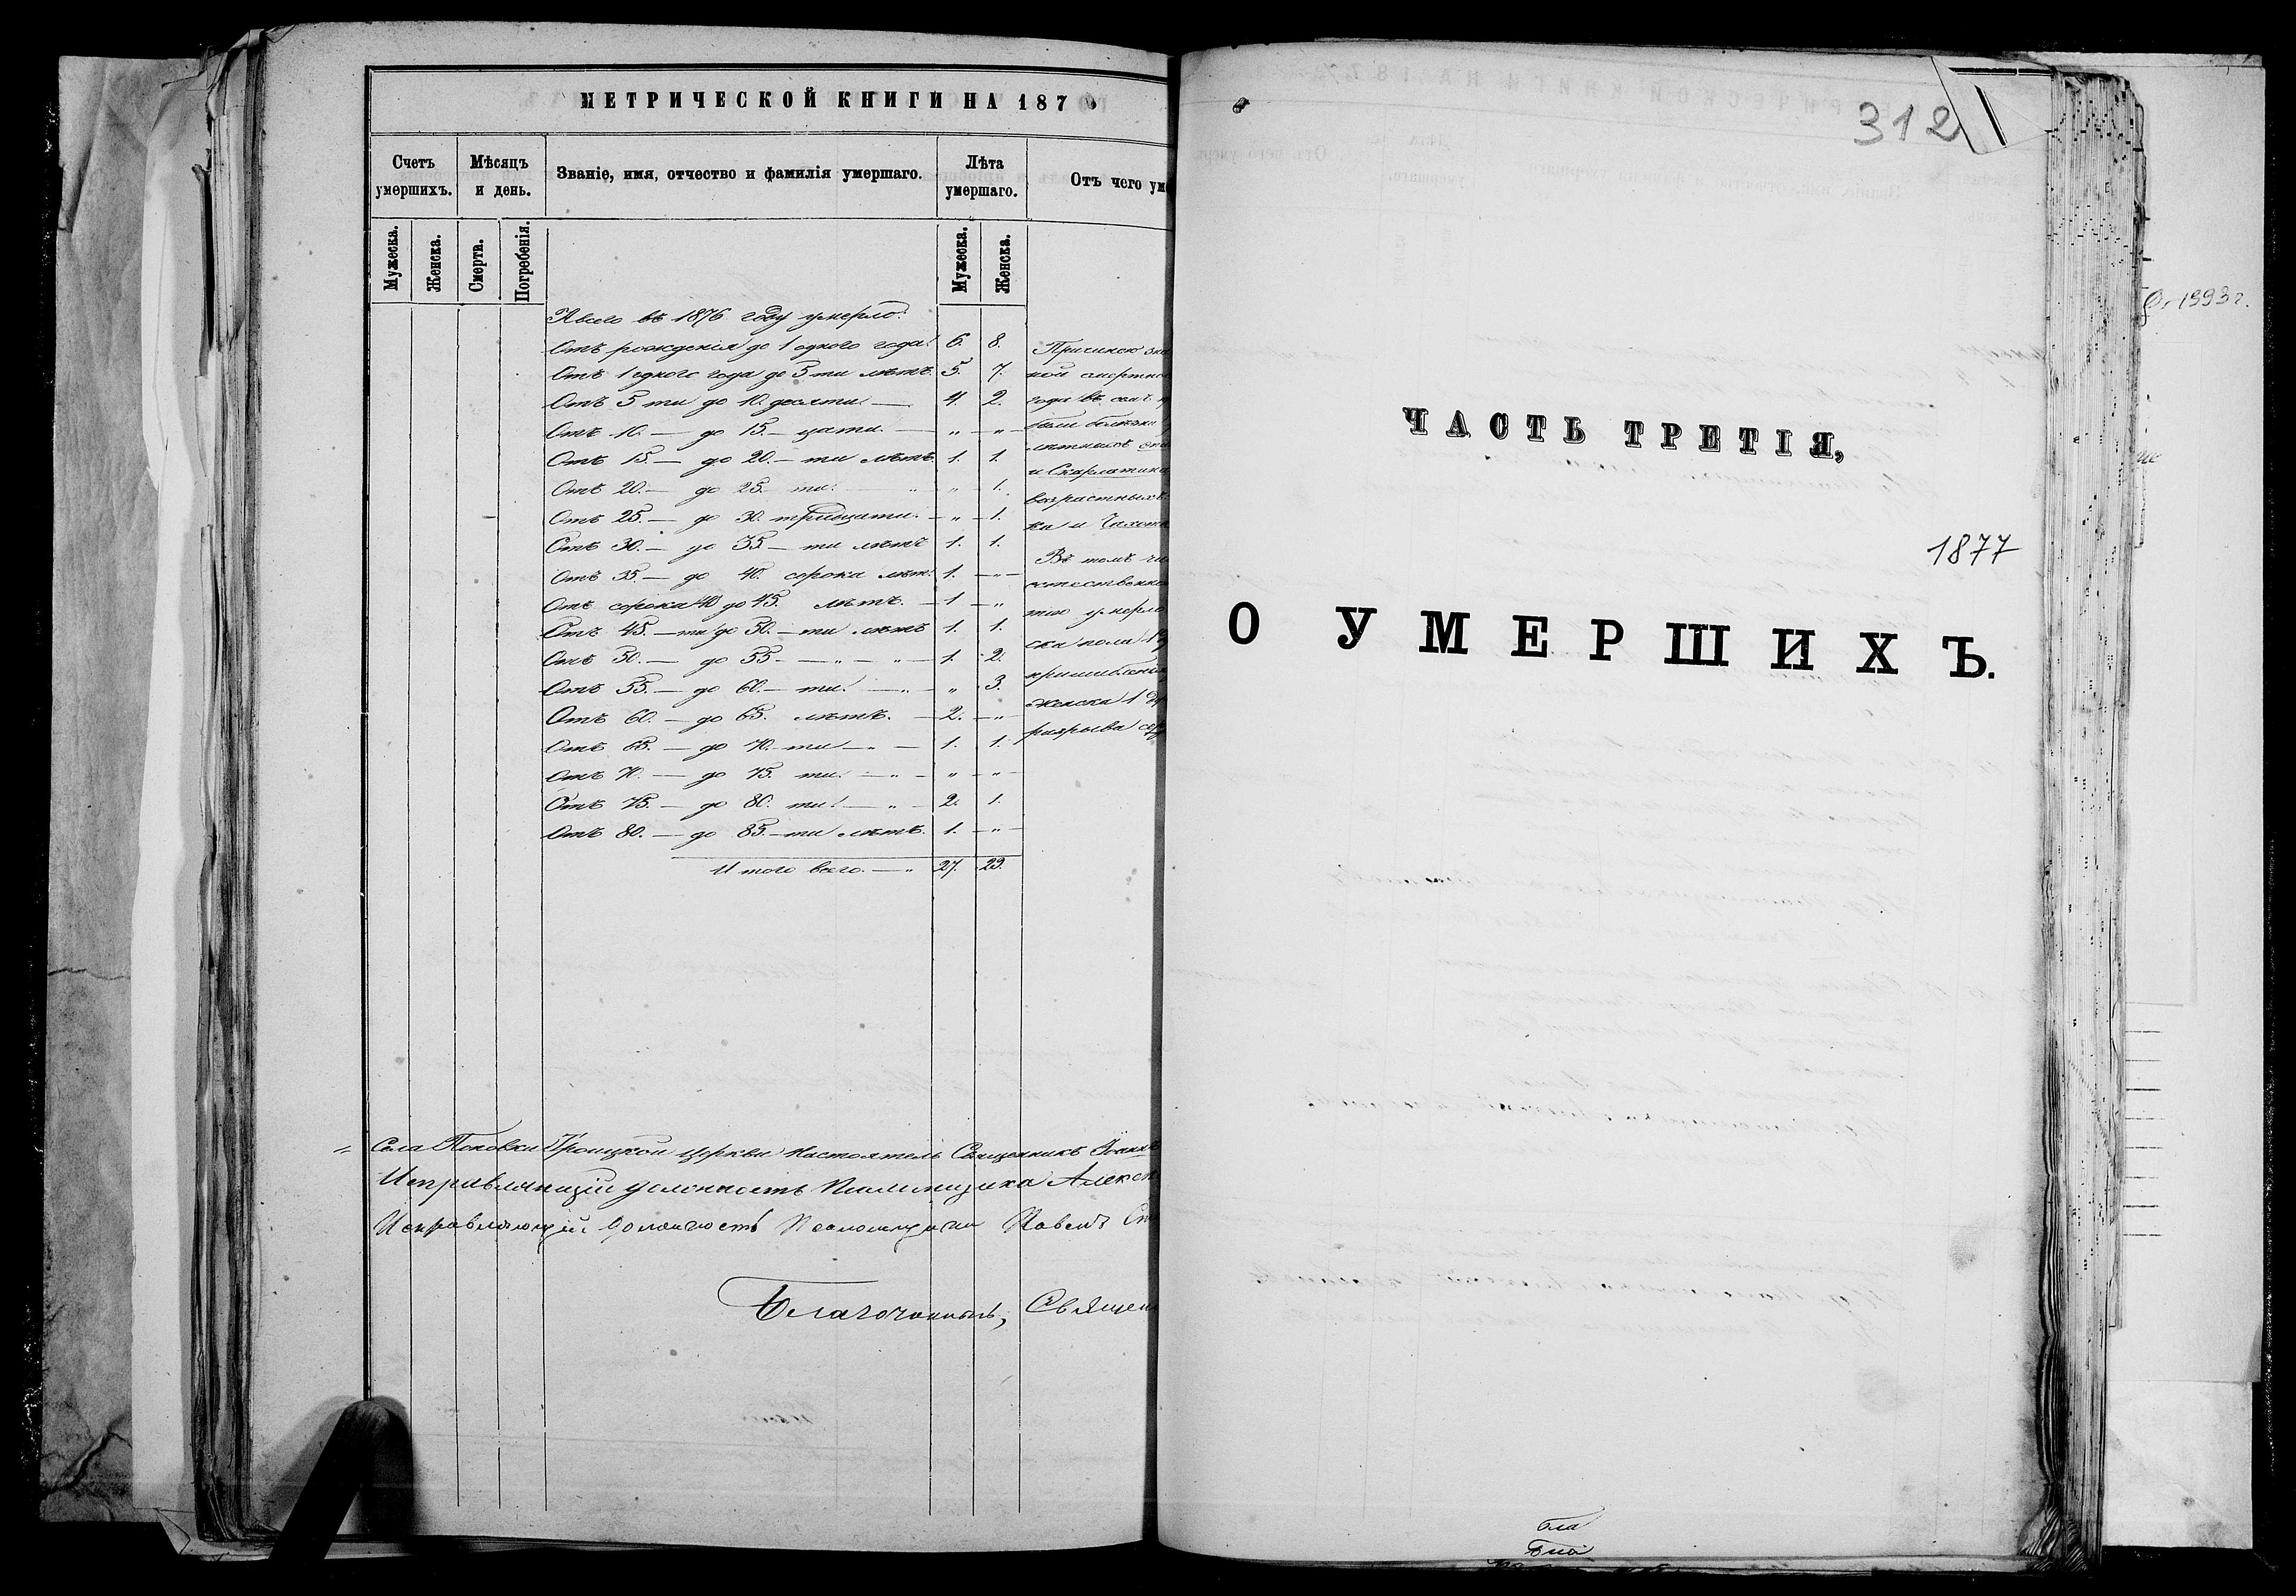 МЕТРИЧЕСКОЙ КНИГИ НА 1876
Счетъ умершихъ.
Мѣсяцъ и день.
Званіе, имя, отчество и фамилія умершаго.
Лѣта умершаго.
Отъ чего ум
Мужеска.
Женска.
Смерти.
Погребенія.
Мужеска.
Женска.
А всего въ 1876 году умерло:
Отъ рожденія до 1 одного года 6. 8.
Отъ 1 одного года до 5 ти лѣтъ. 5. 7.
Отъ 5 ти до 10. десяти — 4. 2.
Отъ 10. — до 15. — цати. — „ — „
Отъ 15 — до 20. — ти лѣтъ. 1. 1.
Отъ 20. — до 25. ти. „ „ 1.
Отъ 25. — до 30. тридцати. — „ — 1.
Отъ 30. — до 35 — ти лѣтъ 1. 1.
Отъ 35. — до 40. сорока лѣт. 1. — „ —
Отъ сорока 40 до 45. лѣтъ. — 1 — „
Отъ 45. — ти до 50. — ти лѣтъ 1. 1.
Отъ 50. — до 55 — „ — „ — 1. 2.
Отъ 55. — до 60. — ти. — „ — „ 3.
Отъ 60. — до 65. лѣтъ. — 2. — „
Отъ 65. — до 70. — ти — „ — 1. 1.
Отъ 70. — до 75. ти. — „ — „ — „ —
Отъ 75. — до 80. ти. — „ — 2. 1.
Отъ 80. — до 85. — ти лѣтъ. 1. — „ —
Итого всего. — „ 27. 29.
Причиною зна
ной смертно
года въ семъ п
были болѣзни
лѣтнихъ
и Скарлатина
возрастныхъ
ка и Чахотк
Въ томъ чи
естественно
тію умерло
ска пола 1
женска 1
разрыва сер
Села Поповки Троицкой церкви Настоятель Священникъ Іоаннъ
Исправляющій должность Псаломщика Алекс
Исправляющій должность Псаломщика Павелъ Ст
Благочинный, Священ
312
ЧАСТЬ ТРЕТІЯ,
1877
О УМЕРШИХЪ.
1993 г.